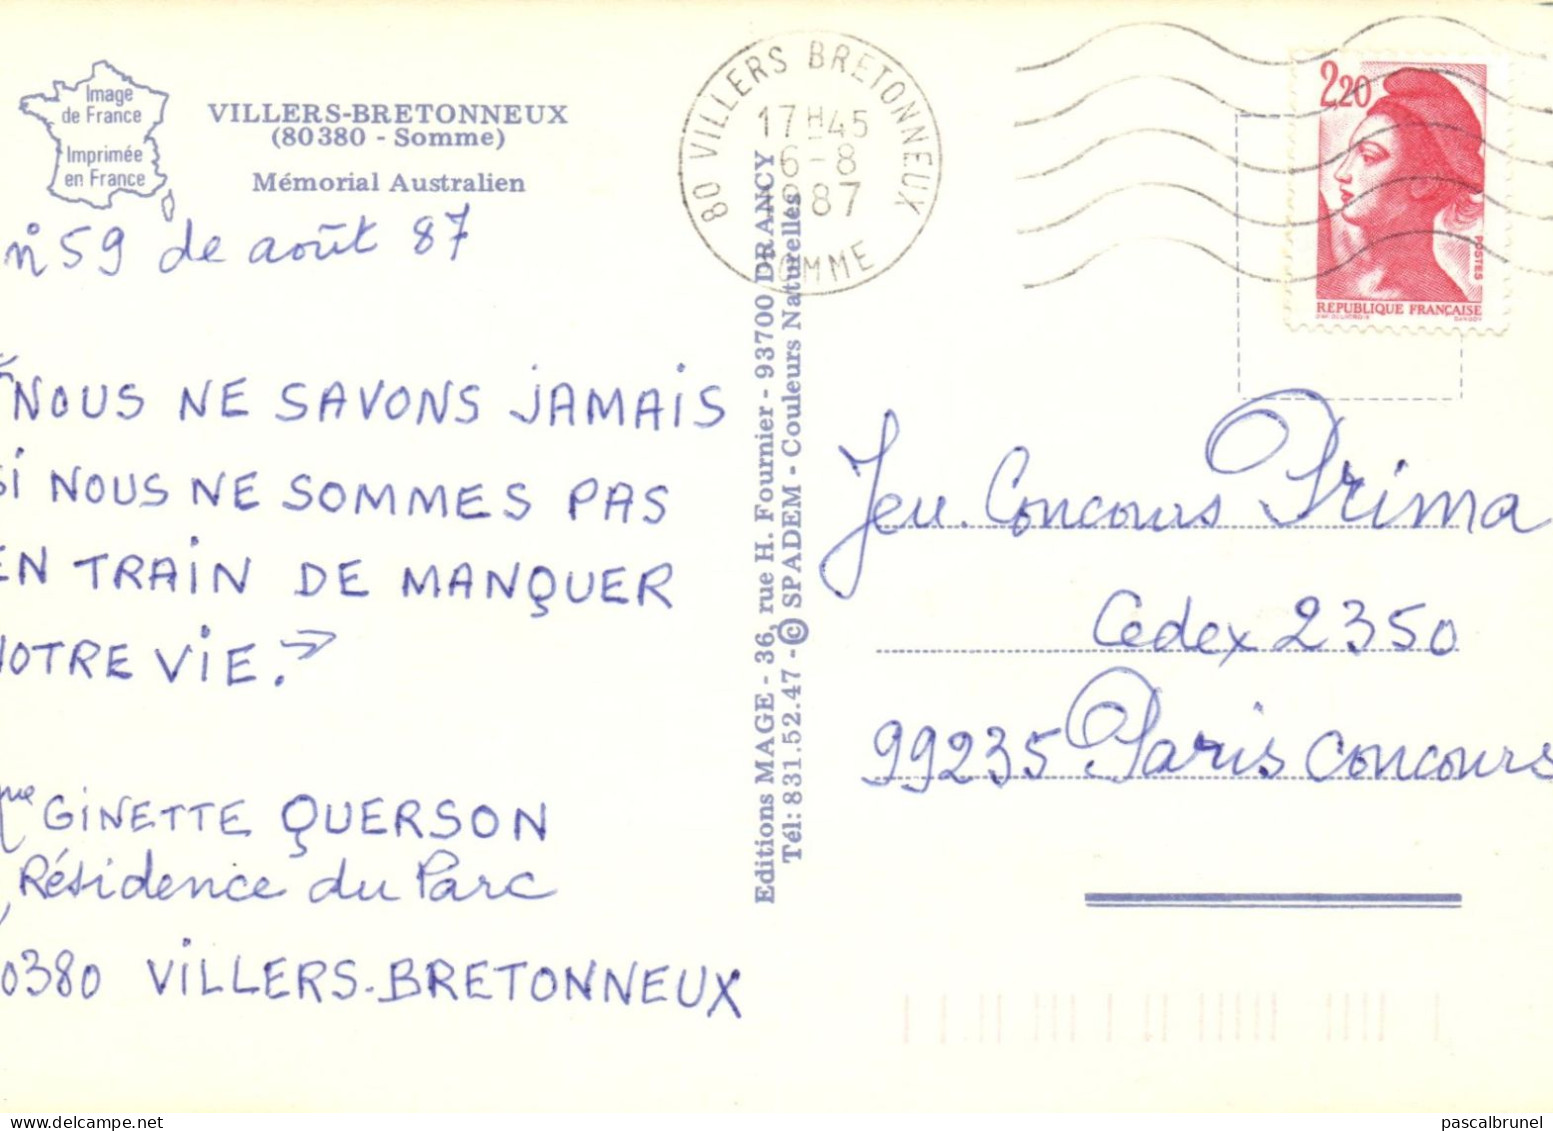 Image
de France
Imprimée
en France
VILLERS-BRETONNEUX
(80380 - Somme)
Mémorial Australien
n° 59 de août 87
"NOUS NE SAVONS JAMAIS
SI NOUS NE SOMMES PAS
EN TRAIN DE MANQUER
NOTRE VIE."
GINETTE QUERSON
Résidence du Parc
80380 VILLERS-BRETONNEUX
Editions MAGE - 36, rue H. Fournier - 93700 DRANCY
Tél: 831.52.47 - © SPADEM - Couleurs Naturelles
80 VILLERS BRETONNEUX
17H45
6-8
1987
SOMME
2,20
POSTES
REPUBLIQUE FRANÇAISE
Jeu. Concours Prima
Cedex 2350
99235 Paris Concours
pascalbrunel